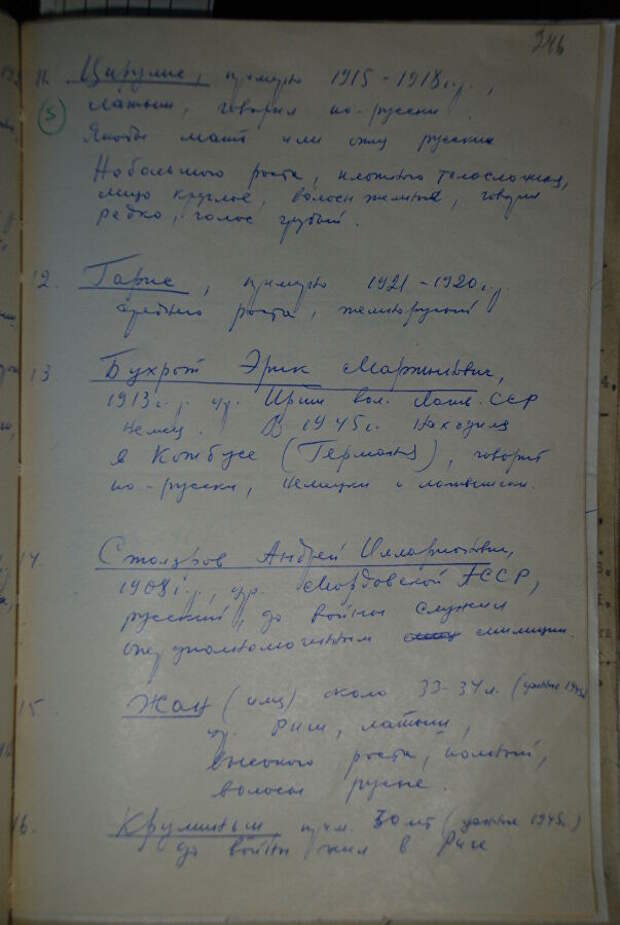 346
11. Цирулис, примерно 1915-1918 г.р.,
5 латыш, говорил по-русски
Якобы мать или отец русские
Небольшого роста, плотного телослож.,
лицо круглое, волосы темные, говорил
редко, голос грубый.
12. Гарис, примерно 1921-1920 г.р.
среднего роста, темнорусый
13 Бухрот Эрик Мартынович,
1913 г.р. ур. вол. Латв. ССР
Немец. В 1945 г. находился
в Котбусе (Германия), говорит
по-русски, немецки и латышски.
14. Столяров Андрей Илларионович,
1908 г.р., ур. Мордовской АССР,
русский, до войны служил
опер уполномоченным милиции.
15 Жан (имя) около 33-34 л. (данные 1945г.)
ур. Риги, латыш,
высокого роста, полный,
волосы русые.
16. Круминьш прим. 30 лет (данные 1945г.)
до войны жил в Риге